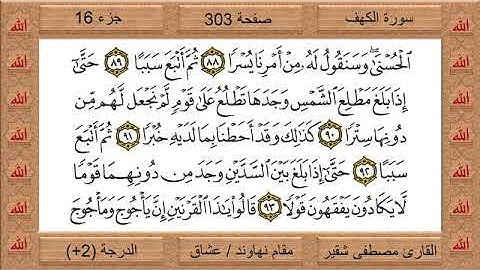 سورة الكهف
صفحة 303
جزء 16
الْحُسْنَىٰ ۖ وَسَنَقُولُ لَهُ مِنْ أَمْرِنَا يُسْرًا ٨٨ ثُمَّ أَتْبَعَ سَبَبًا ٨٩ حَتَّىٰ
إِذَا بَلَغَ مَطْلِعَ الشَّمْسِ وَجَدَهَا تَطْلُعُ عَلَىٰ قَوْمٍ لَّمْ نَجْعَل لَّهُم مِّن
دُونِهَا سِتْرًا ٩٠ كَذَٰلِكَ وَقَدْ أَحَطْنَا بِمَا لَدَيْهِ خُبْرًا ٩١ ثُمَّ أَتْبَعَ
سَبَبًا ٩٢ حَتَّىٰ إِذَا بَلَغَ بَيْنَ السَّدَّيْنِ وَجَدَ مِن دُونِهِمَا قَوْمًا
لَّا يَكَادُونَ يَفْقَهُونَ قَوْلًا ٩٣ قَالُوا يَا ذَا الْقَرْنَيْنِ إِنَّ يَأْجُوجَ وَمَأْجُوجَ
القارئ مصطفى شقير
مقام نهاوند / عشاق
الدرجة (+2)
الله
الله
الله
الله
الله
الله
الله
الله
الله
الله
الله
الله
الله
الله